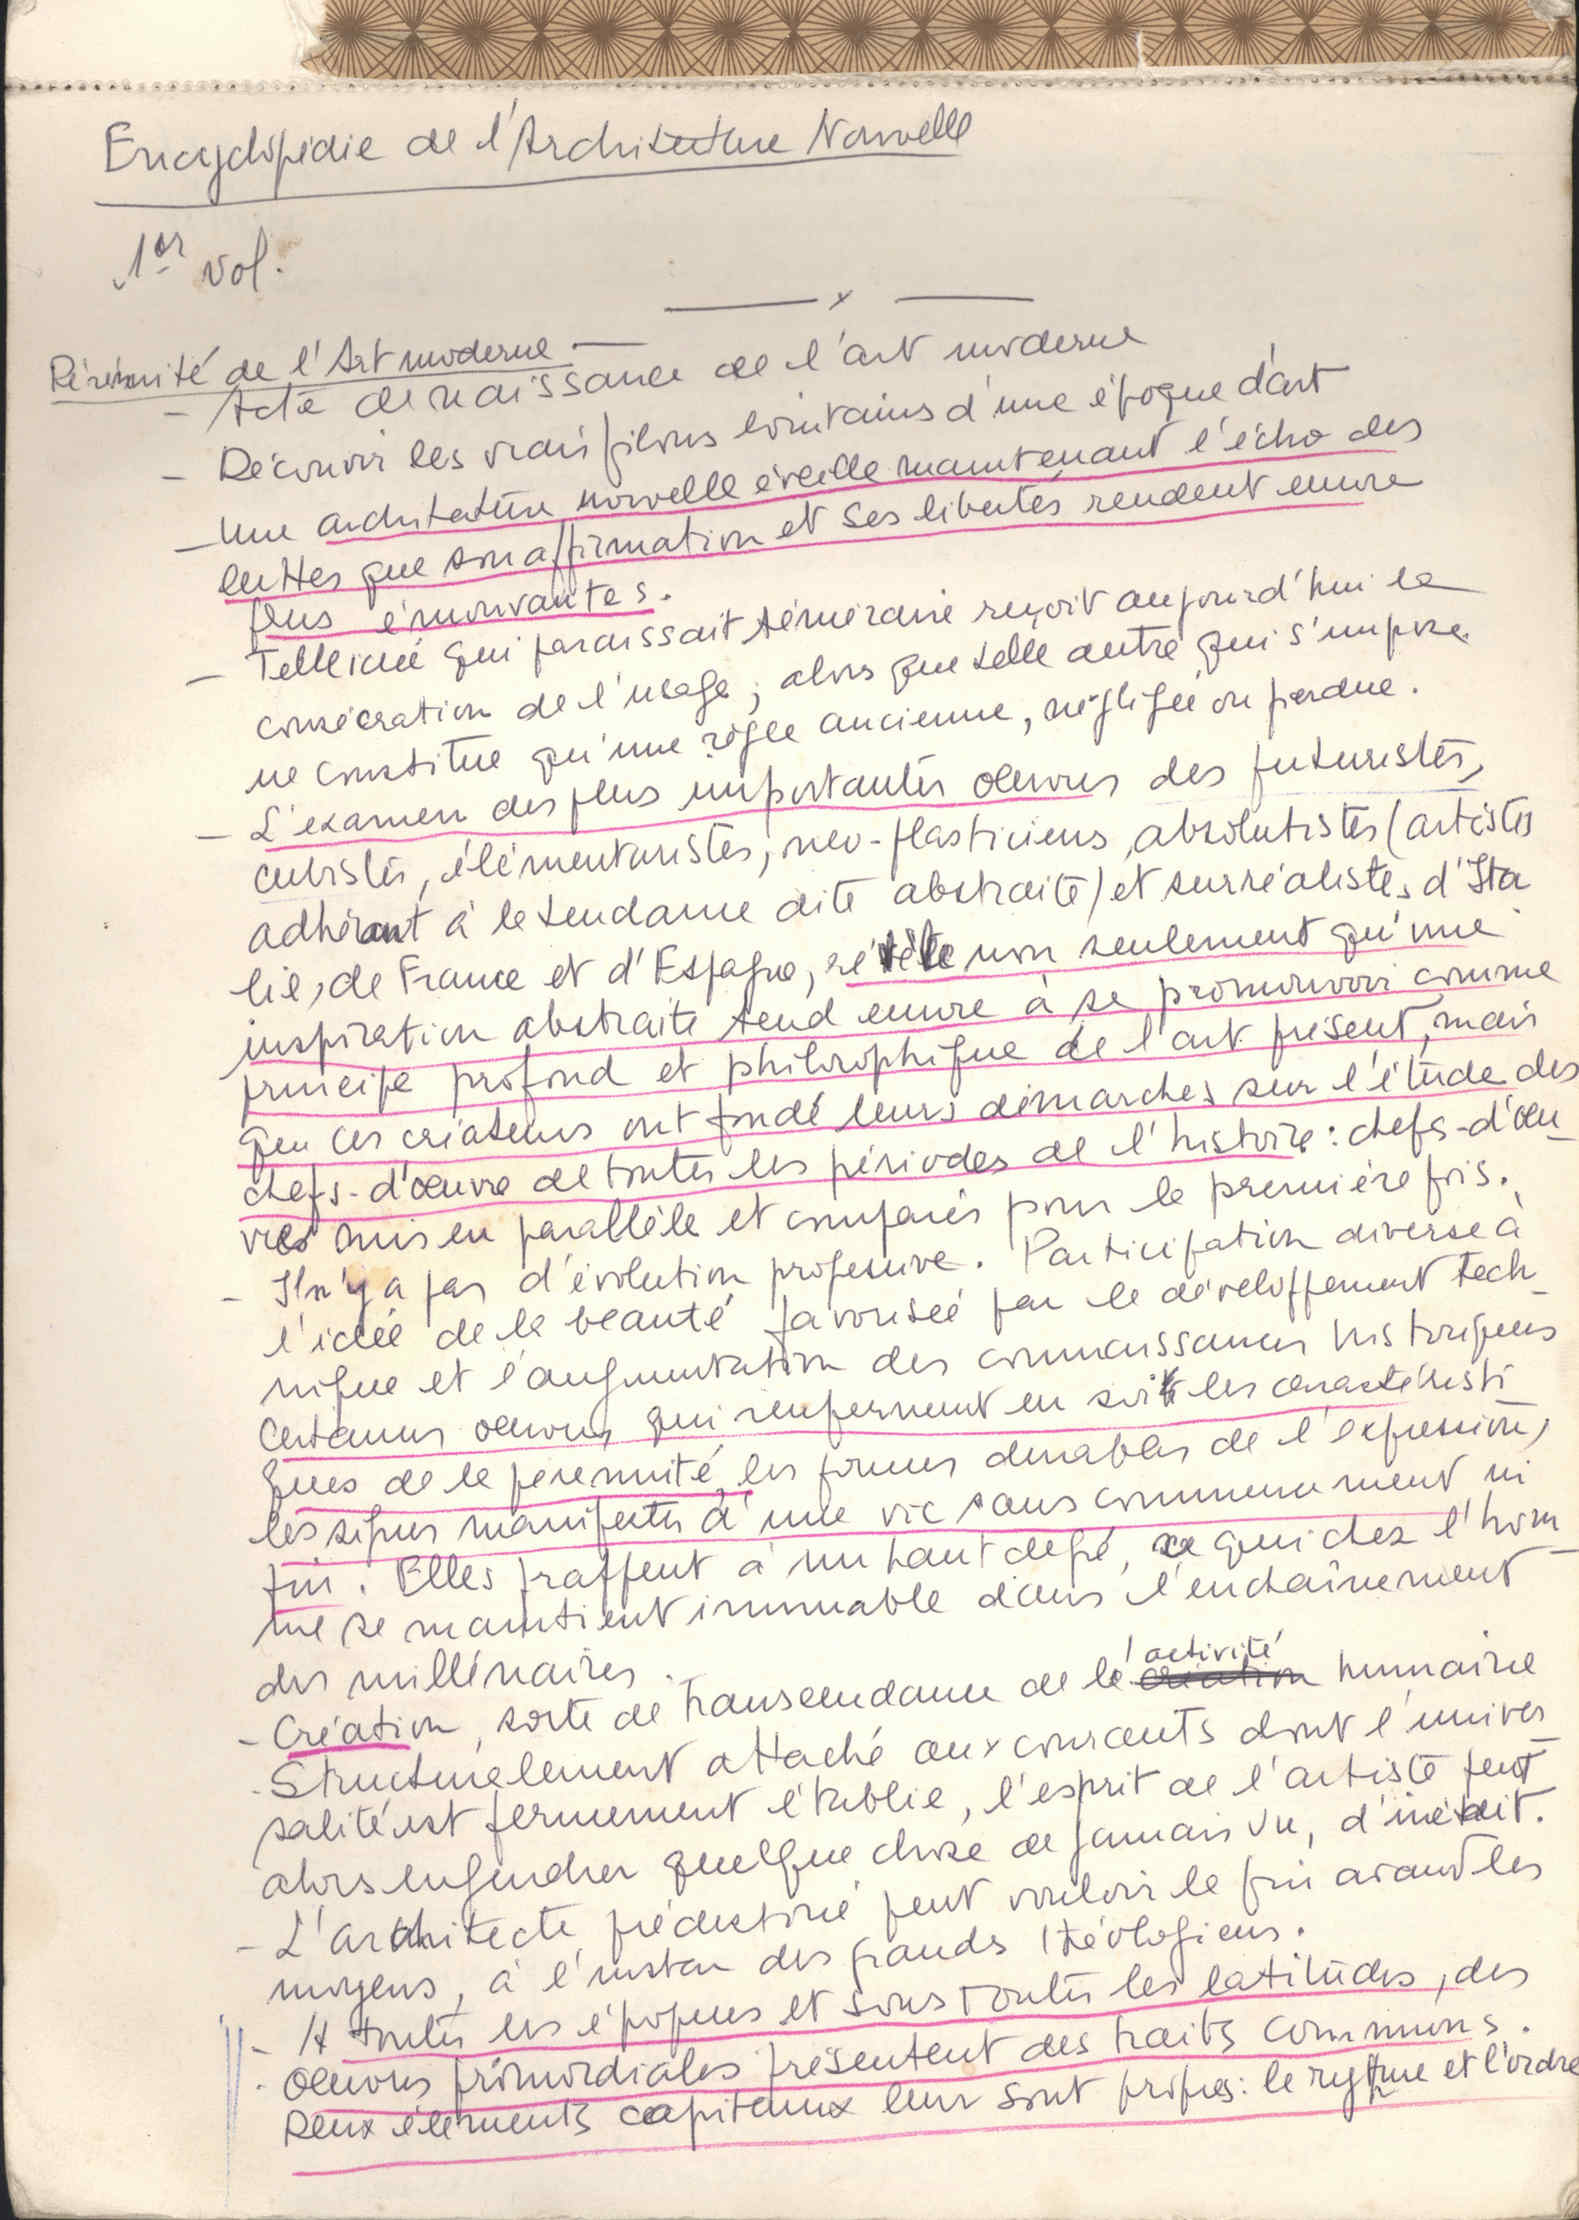 Encyclopédie de l'Architecture Nouvelle
1er vol.
Pérénnité de l'Art moderne —
- Acte de naissance de l'art moderne
- Découvrir les vrais filons lointains d'une époque d'art
- Une architecture nouvelle éveille maintenant l'écho des
luttes que son affirmation et ses libertés rendent encore
plus émouvantes.
- Telle idée qui paraissait téméraire reçoit aujourd'hui la
consécration de l'usage, alors que telle autre qui s'impose
ne constitue qu'une règle ancienne, négligée ou perdue.
- L'examen des plus importantes oeuvres des futuristes,
cubistes, élémentaristes, néo-plasticiens, absolutistes (artistes
adhérant à la tendance dite abstraite) et surréalistes d'Ita
lie, de France et d'Espagne, révèle non seulement qu'une
inspiration abstraite tend encore à se promouvoir comme
principe profond et philosophique de l'art présent, mais
que ces créateurs ont fondé leurs démarches sur l'étude des
chefs-d'œuvre de toutes les périodes de l'histoire : chefs-d'œu-
vres mis en parallèle et comparés pour la première fois.
- Il n'y a pas d'évolution progressive. Participation diverse à
l'idée de la beauté favorisée par le développement tech-
nique et l'augmentation des connaissances historiques
Certaines oeuvres qui renferment en soi les caractéristi
ques de la perennité, les formes durables de l'expression,
les signes manifestes d'une vie sans commencement ni
fin. Elles frappent à un haut degré, ce qui chez l'hom-
me se maintient immuable dans l'enchaînement
des millénaires.
- Création, sorte de transcendance de l'activité humaine
- Structurelement attaché aux courants dont l'univer-
salité est fermement établie, l'esprit de l'artiste peut
alors engendrer quelque chose de jamais vu, d'inédit.
- L'architecte prédestiné peut vouloir la fin avant les
moyens, à l'instar des grands théologiens.
- A toutes les époques et sous toutes les latitudes, des
oeuvres primordiales présentent des traits communs.
Deux éléments capitaux leur sont propres : le rythme et l'ordre